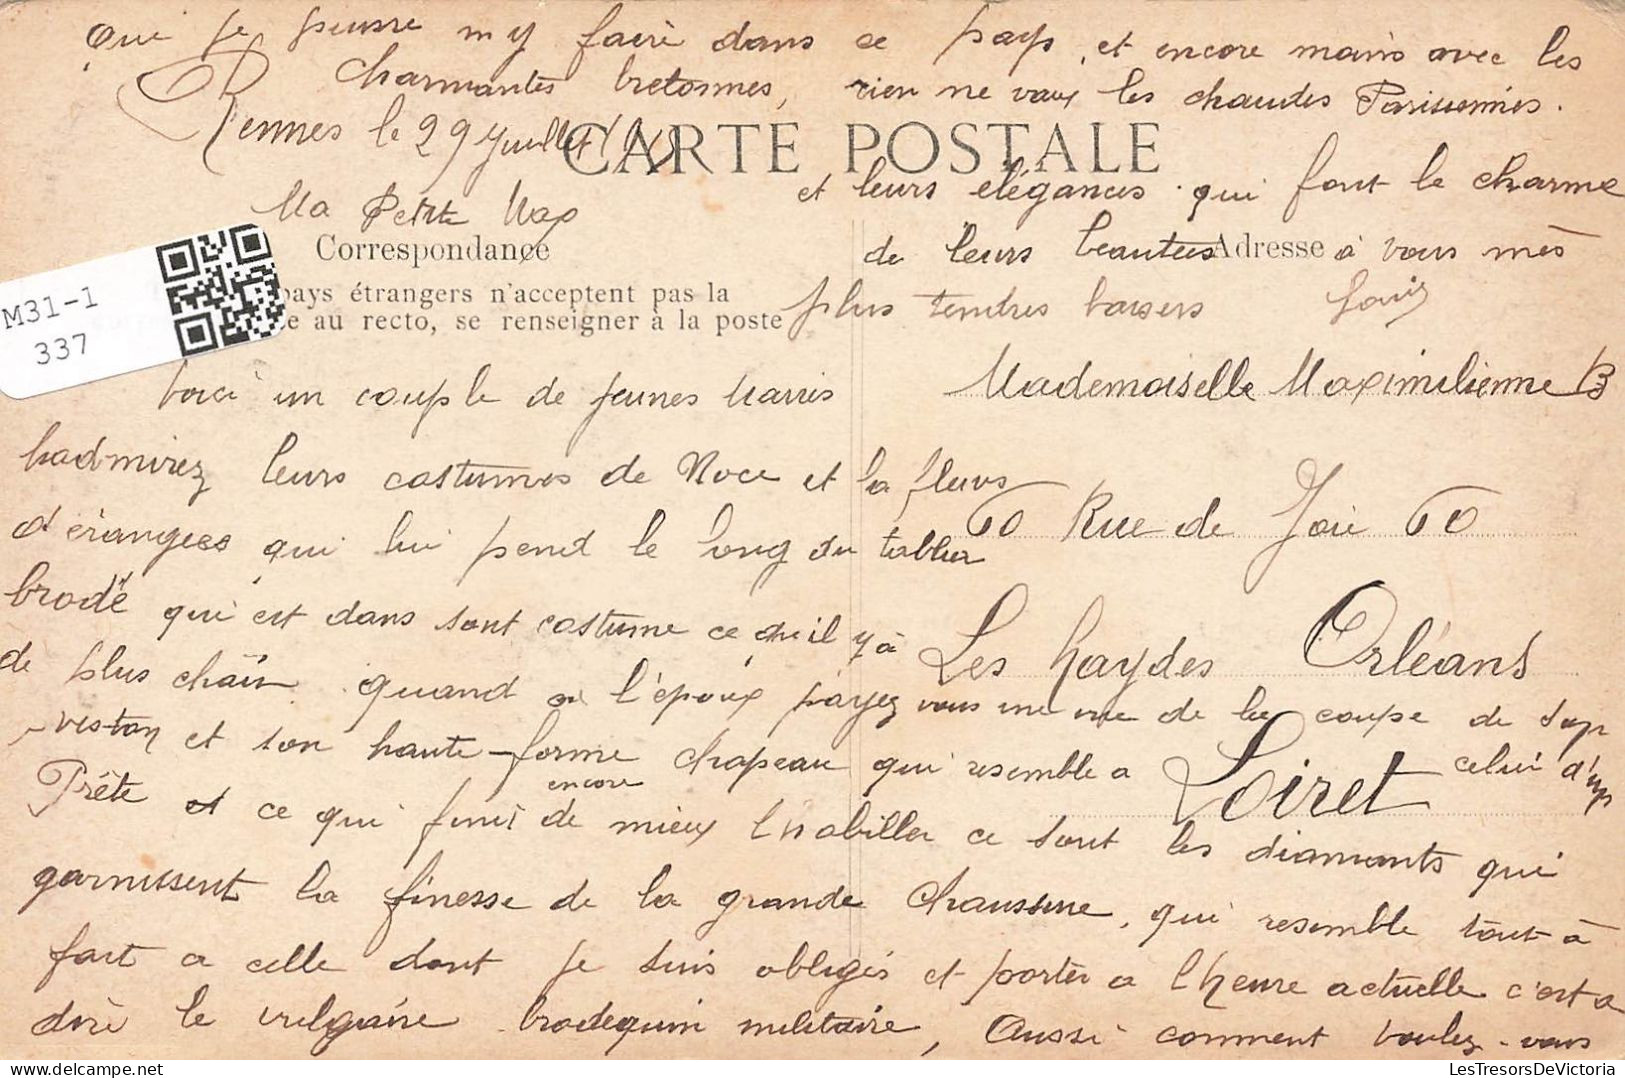 que je puisse my faire dans ce pays, et encore mains avec les
charmantes bretonnes, rien ne vaux les chaudes Parisiennes.
Rennes le 29 Juillet
CARTE POSTALE
et leurs élégances qui font le charme
Ma Petite Max
Correspondance
de leurs beautées
Adresse
à vous mes
pays étrangers n'acceptent pas la
plus tendres baisers Louis
M31-1
337
e au recto, se renseigner à la poste
Voici un couple de jeunes marris
Mademoiselle Maximilienne B
hadmirez leurs costumes de Noce et la fleurs
60 Rue de Joie 60
d'érangees qui lui pend le long du tablier
brodé qui est dans sont costume ce qu'il y à
Les haydes Orléans
de plus chair quand a l'époux payez vous une vue de la coupe de son
veston et son haute-forme chapeau qui resemble a celui d'un
Loiret
Prète et ce qui finit encore de mieux l'habiller ce sont les diamants qui
garnissent la finesse de la grande chaussure, qui resemble tout à
fait a celle dont je suis obligés et porter a l'heure actuelle c'est a
dire le vulgaire brodequin militaire, Aussi comment voulez-vous
www.LesTresorsDeVictoria.com